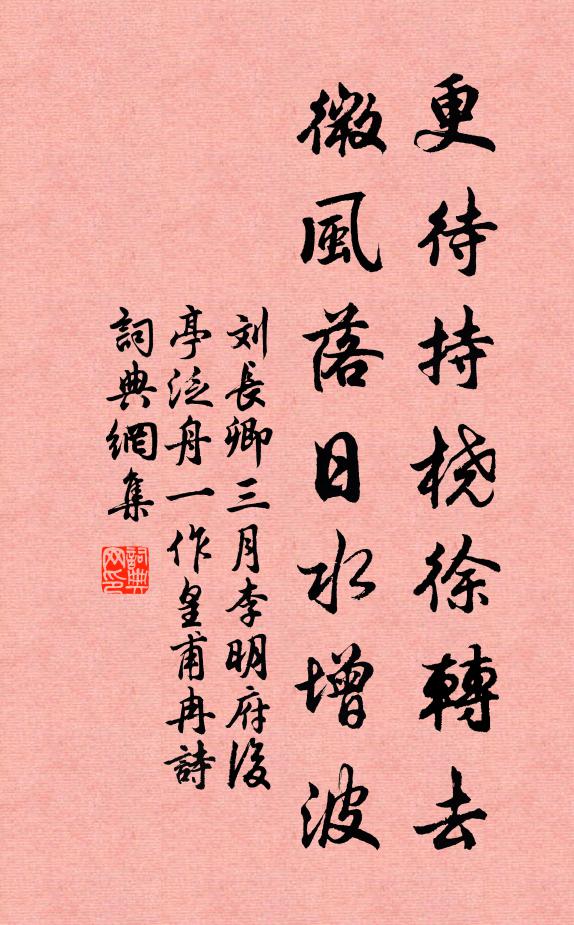 更待持桡徐轉去
微風落日水增波
刘長卿三月李明府後
亭泛舟一作皇甫冉詩
詞典網集
詞典网印